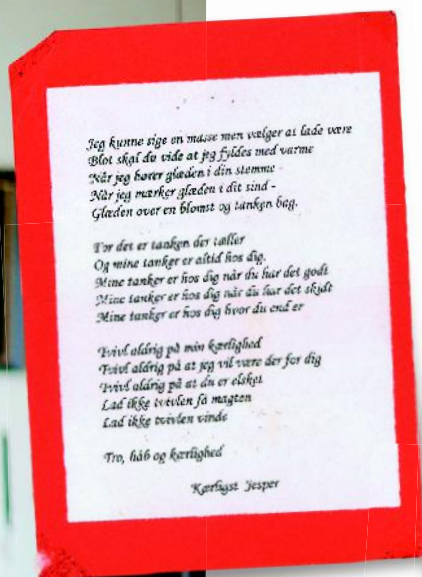 Jeg kunne sige en masse men vælger at lade være
Blot skal du vide at jeg fyldes med varme
Når jeg hører glæden i din stemme -
Når jeg mærker glæden i dit sind -
Glæden over en blomst og tanken bag.
For det er tanken der tæller
Og mine tanker er altid hos dig.
Mine tanker er hos dig når du har det godt
Mine tanker er hos dig når du har det skidt
Mine tanker er hos dig hvor du end er
Tvivl aldrig på min kærlighed
Tvivl aldrig på at jeg vil være der for dig
Tvivl aldrig på at du er elsket
Lad ikke tvivlen få magten
Lad ikke tvivlen vinde
Tro, håb og kærlighed
Kærligst Jesper